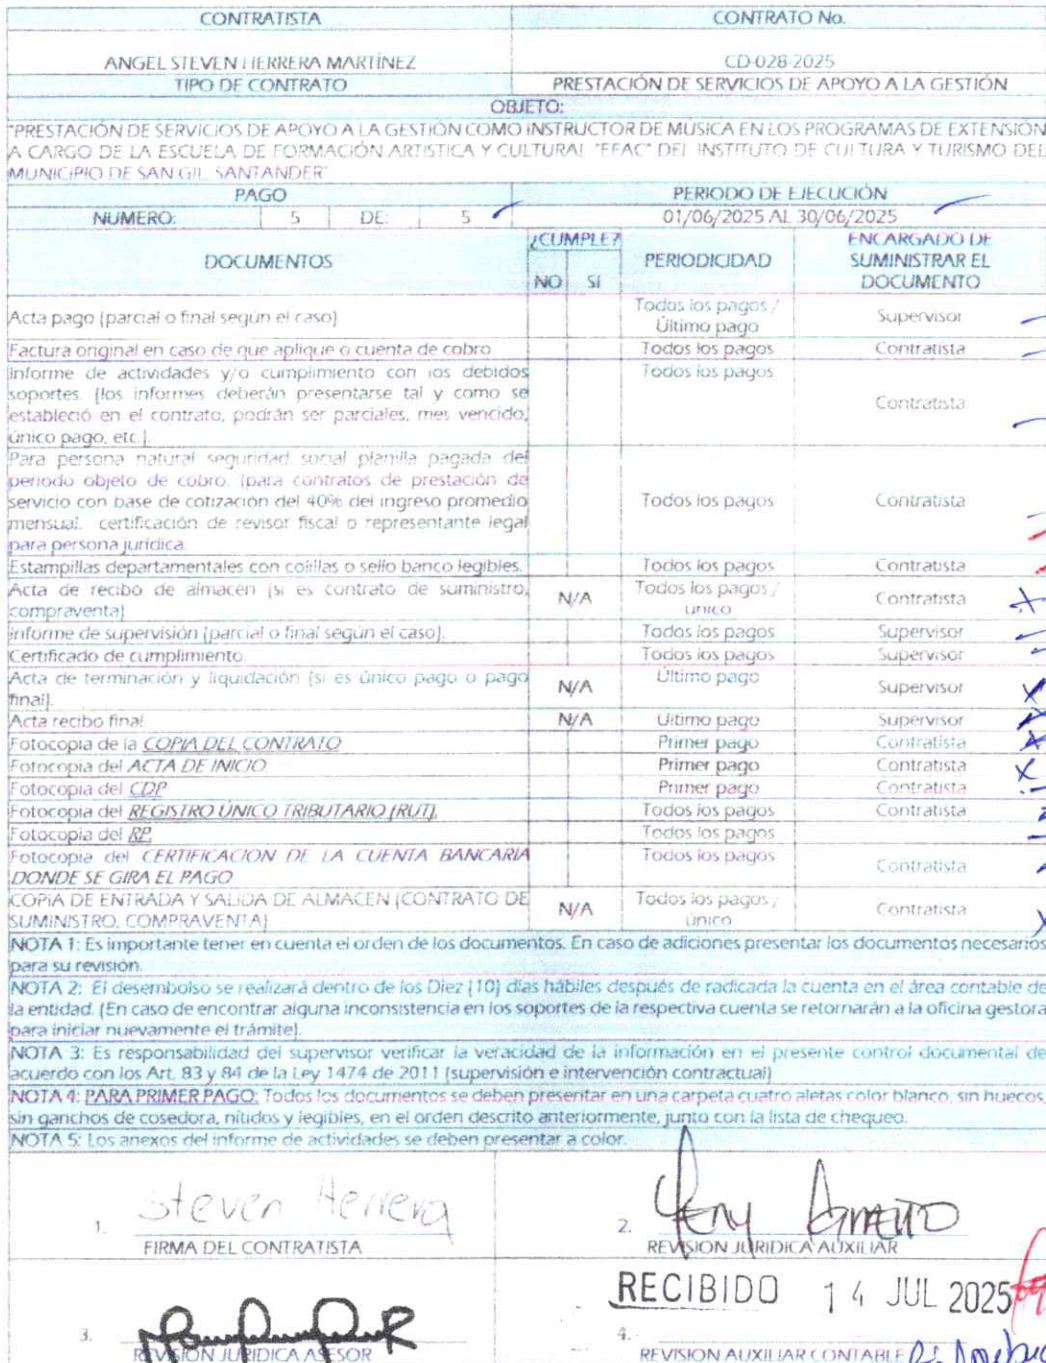 CONTRATISTA CONTRATO No.
ANGEL STEVEN HERRERA MARTÍNEZ CD-028-2025
TIPO DE CONTRATO PRESTACIÓN DE SERVICIOS DE APOYO A LA GESTIÓN
OBJETO:
"PRESTACIÓN DE SERVICIOS DE APOYO A LA GESTIÓN COMO INSTRUCTOR DE MUSICA EN LOS PROGRAMAS DE EXTENSIÓN
A CARGO DE LA ESCUELA DE FORMACIÓN ARTISTICA Y CULTURAL "EFAC" DEL INSTITUTO DE CULTURA Y TURISMO DEL
MUNICIPIO DE SAN GIL, SANTANDER"
PAGO PERIODO DE EJECUCIÓN
NUMERO: 5 DE: 5 01/06/2025 AL 30/06/2025
DOCUMENTOS ¿CUMPLE? NO SI PERIODICIDAD ENCARGADO DE
SUMINISTRAR EL
DOCUMENTO
Acta pago (parcial o final según el caso) Todos los pagos /
Último pago Supervisor
Factura original en caso de que aplique o cuenta de cobro Todos los pagos Contratista
Informe de actividades y/o cumplimiento con los debidos Todos los pagos
soportes. (los informes deberán presentarse tal y como se
estableció en el contrato, podrán ser parciales, mes vencido, Contratista
único pago, etc.)
Para persona natural seguridad social planilla pagada del
periodo objeto de cobro. (para contratos de prestación de
servicio con base de cotización del 40% del ingreso promedio Todos los pagos Contratista
mensual. certificación de revisor fiscal o representante legal
para persona jurídica.
Estampillas departamentales con colillas o sello banco legibles. Todos los pagos Contratista
Acta de recibo de almacén (si es contrato de suministro, N/A Todos los pagos / Contratista
compraventa) único
Informe de supervisión (parcial o final según el caso). Todos los pagos Supervisor
Certificado de cumplimiento. Todos los pagos Supervisor
Acta de terminación y liquidación (si es único pago o pago N/A Último pago Supervisor
final).
Acta recibo final N/A Ultimo pago Supervisor
Fotocopia de la COPIA DEL CONTRATO Primer pago Contratista
Fotocopia del ACTA DE INICIO Primer pago Contratista
Fotocopia del CDP Primer pago Contratista
Fotocopia del REGISTRO ÚNICO TRIBUTARIO (RUT). Todos los pagos Contratista
Fotocopia del RP. Todos los pagos
Fotocopia del CERTIFICACION DE LA CUENTA BANCARIA Todos los pagos Contratista
DONDE SE GIRA EL PAGO
COPIA DE ENTRADA Y SALIDA DE ALMACEN (CONTRATO DE N/A Todos los pagos / Contratista
SUMINISTRO, COMPRAVENTA) único
NOTA 1: Es importante tener en cuenta el orden de los documentos. En caso de adiciones presentar los documentos necesarios
para su revisión.
NOTA 2: El desembolso se realizará dentro de los Diez (10) días hábiles después de radicada la cuenta en el área contable de
la entidad. (En caso de encontrar alguna inconsistencia en los soportes de la respectiva cuenta se retornarán a la oficina gestora
para iniciar nuevamente el trámite).
NOTA 3: Es responsabilidad del supervisor verificar la veracidad de la información en el presente control documental de
acuerdo con los Art. 83 y 84 de la Ley 1474 de 2011 (supervisión e intervención contractual)
NOTA 4: PARA PRIMER PAGO: Todos los documentos se deben presentar en una carpeta cuatro aletas color blanco, sin huecos,
sin ganchos de cosedora, nítidos y legibles, en el orden descrito anteriormente, junto con la lista de chequeo.
NOTA 5: Los anexos del informe de actividades se deben presentar a color.
Steven Herrera
1. 2.
FIRMA DEL CONTRATISTA REVISION JURIDICA AUXILIAR
RECIBIDO 14 JUL 2025
3. 4.
REVISION JURIDICA ASESOR REVISION AUXILIAR CONTABLE